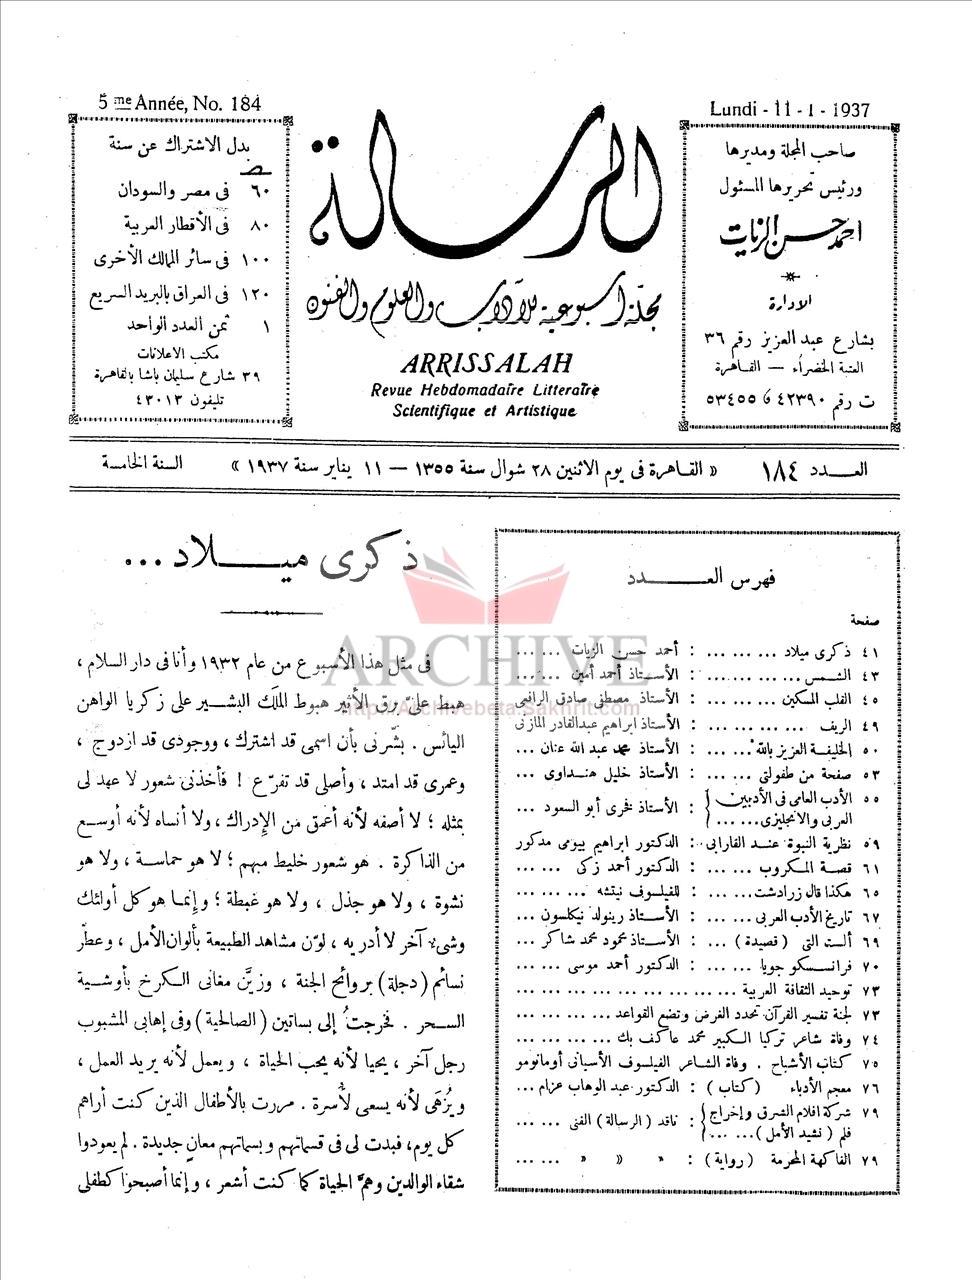 5 me Année, No. 184
Lundi - 11 - 1 - 1937
صاحب المجلة ومديرها
ورئيس تحريرها المسئول
احمد حسن الزيات
الادارة
بشارع عبد العزيز رقم ٣٦
العتبة الخضراء — القاهرة
ت رقم ٤٢٣٩٠ و ٥٣٤٥٥
الرسالة
مجلة أسبوعية للآداب والعلوم والفنون
ARRISSALAH
Revue Hebdomadaire Litteraire
Scientifique et Artistique
بدل الاشتراك عن سنة
٦٠ فى مصر والسودان
٨٠ فى الأقطار العربية
١٠٠ فى سائر الممالك الأخرى
١٢٠ فى العراق بالبريد السريع
١ ثمن العدد الواحد
مكتب الاعلانات
٣٩ شارع سليمان باشا بالقاهرة
تليفون ٤٣٠١٣
العـــدد ١٨٤ « القاهرة فى يوم الاثنين ٢٨ شوال سنة ١٣٥٥ — ١١ يناير سنة ١٩٣٧ » السنة الخامسة
فهرس العـــدد
صفحة
٤١ ذكرى ميلاد ... ... ... : أحمد حسن الزيات ... ...
٤٣ الشمس ... ... ... ... : الأستاذ أحمد أمين ... ...
٤٥ القلب المسكين ... ... ... : الأستاذ مصطفى صادق الرافعى
٤٩ الريف ... ... ... ... : الأستاذ ابراهيم عبدالقادر المازنى
٥٠ الخليفة العزيز بالله ... ... : الأستاذ محمد عبد الله عنان ...
٥٣ صفحة من طفولتى ... ... : الأستاذ خليل هنداوى ...
٥٥ الأدب العامى فى الأدبين
العربى والانجليزى ... ... } : الأستاذ فخرى أبو السعود ...
٥٩ نظرية النبوة عند الفارابى : الدكتور ابراهيم بيومى مدكور
٦١ قصة المكروب ... ... : الدكتور أحمد زكى ... ...
٦٥ هكذا قال زرادشت ... ... : للفيلسوف نيتشه ... ... ...
٦٧ تاريخ الأدب العربى ... ... : الأستاذ رينولد نيكلسون ...
٦٩ ألست التى ( قصيدة ) ... : الأستاذ محمود محمد شاكر ...
٧٠ فرانسسكو جويا ... ... : الدكتور أحمد موسى ... ...
٧٣ توحيد الثقافة العربية ... ... ... ... ... ... ...
٧٣ لجنة تفسير القرآن تحدد الغرض وتضع القواعد ... ... ...
٧٤ وفاة شاعر تركيا الكبير محمد عاكف بك ... ... ... ...
٧٥ كتاب الأشباح . وفاة الشاعر الفيلسوف الأسبانى أومانومو
٧٦ معجم الأدباء ( كتاب ) : الدكتور عبد الوهاب عزام ...
٧٩ شركة افلام الشرق وإخراج
فلم ( نشيد الأمل ) ... ... } : ناقد ( الرسالة ) الفنى ... ...
٧٩ الفاكهة المحرمة ( رواية ) : » » » ... ...
ذكرى ميـــلاد ...
فى مثل هذا الأسبوع من عام ١٩٣٢ وأنا فى دار السلام ،
هبط علىّ برق الأثير هبوط الملَك البشير على زكريا الواهن
اليائس . بشّرنى بأن اسمى قد اشترك ، ووجودى قد ازدوج ،
وعمرى قد امتد ، وأصلى قد تفرّع ! فأخذنى شعور لا عهد لى
بمثله ؛ لا أصفه لأنه أعمق من الإدراك ، ولا أنساه لأنه أوسع
من الذاكرة . هو شعور خليط مبهم ؛ لا هو حماسة ، ولا هو
نشوة ، ولا هو جذل ، ولا هو غبطة ؛ وإنما هو كل أولئك
وشىء آخر لا أدريه ، لوّن مشاهد الطبيعة بألوان الأمل ، وعطّر
نسائم (دجلة) بروائح الجنة ، وزيَّن مغانى الكرخ بأوشية
السحر . فخرجتُ إلى بساتين (الصالحية) وفى إهابى المشبوب
رجل آخر ، يحيا لأنه يحب الحياة ، ويعمل لأنه يريد العمل ،
ويُزْهَى لأنه يسعى لأسرة . مررت بالأطفال الذين كنت أراهم
كل يوم، فبدت لى فى قسماتهم وبسماتهم معانٍ جديدة . لم يعودوا
شقاء الوالدين وهمَّ الحياة كما كنت أشعر ، وإنما أصبحوا كطفلى
ARCHIVE
http://Archivebeta.Sakhrit.com